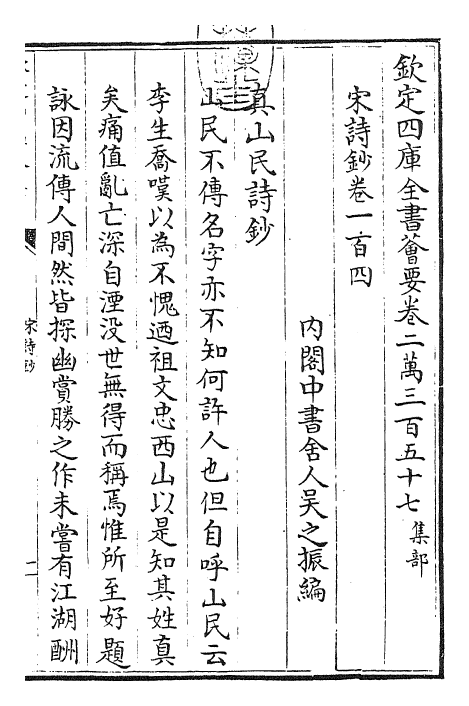 欽定四庫全書薈要卷二萬三百五十七 集部
宋詩鈔卷一百四
內閣中書舍人吳之振編
真山民詩鈔
山民不傳名字亦不知何許人也但自呼山民云
李生喬嘆以為不愧迺祖文忠西山以是知其姓真
矣痛值亂亡深自湮沒世無得而稱焉惟所至好題
詠因流傳人間然皆探幽賞勝之作未嘗有江湖酬
宋詩鈔